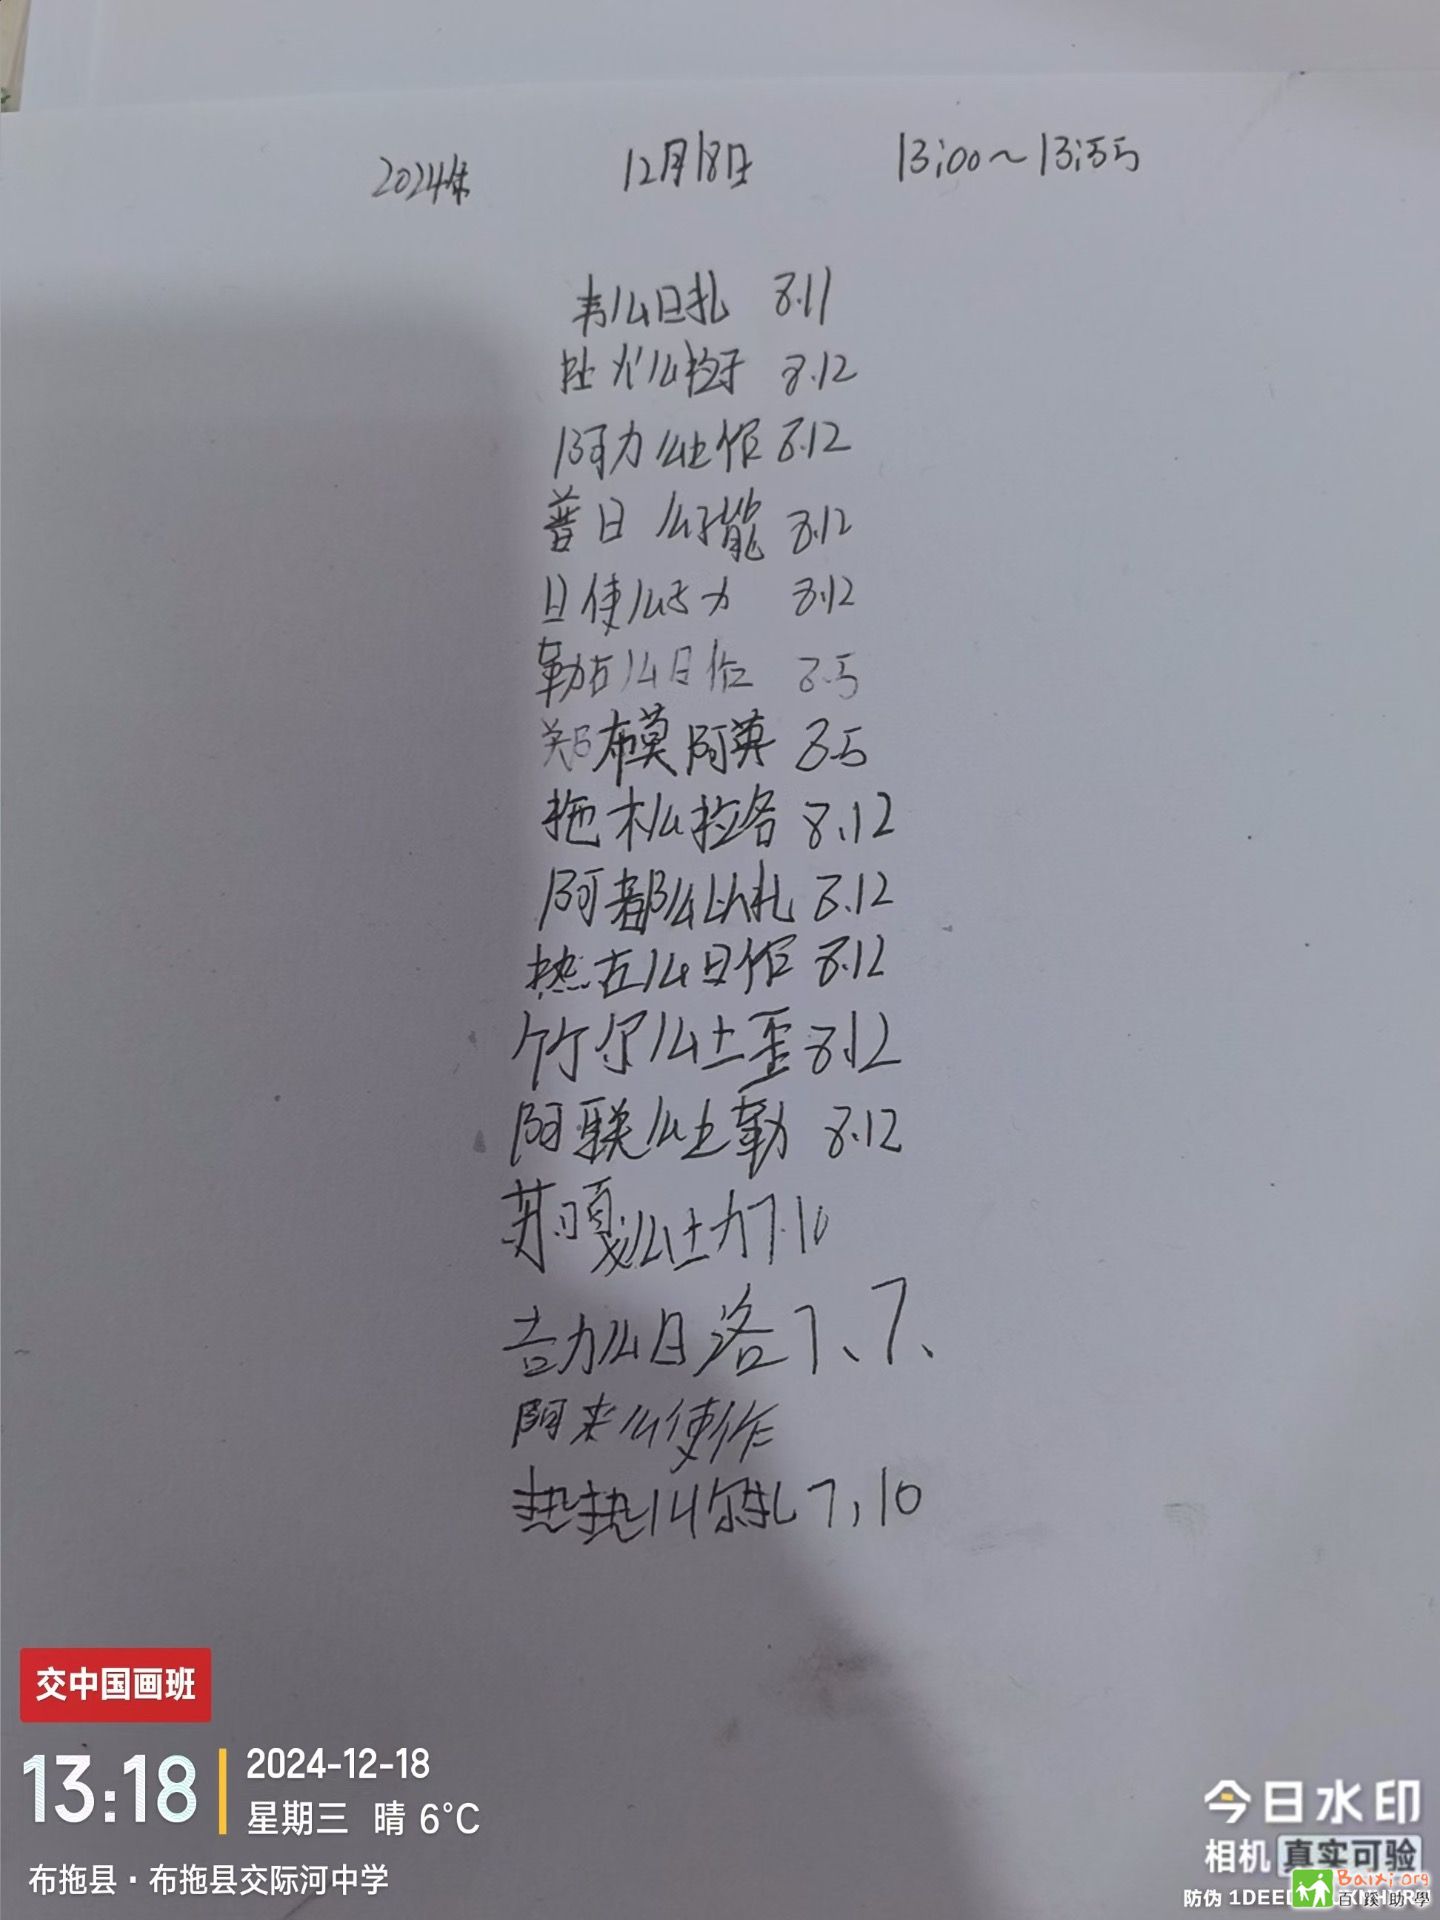 2024年 12月18日 13:00~13:55
韦么日扎 8.11
么 8.12
阿力么 作 8.12
普日么 能 8.12
日使么 力 8.12
勒古么日作 8.5
郑布莫阿英 8.5
拖木么拉各 8.12
阿都么比扎 8.12
热古么日作 8.12
竹尔么土歪 8.12
阿联么土勒 8.12
苏嘎么土力 7.10
吉力么日洛 7、7、
阿来么使作
热热么尔扎 7,10
交中国画班
13:18
2024-12-18
星期三 晴 6°C
布拖县·布拖县交际河中学
今日水印
相机 真实可验
防伪 1DEED
Baixi.org
百蹊助學